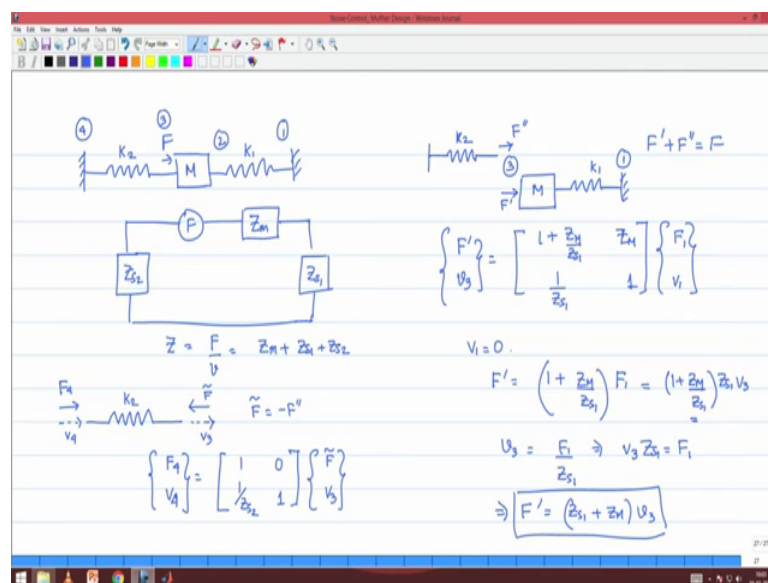 Noise Control_Muffler Design - Windows Journal
File Edit View Insert Actions Tools Help
Page Width
B I
④ ③ ② ①
F
K₂ M K₁
F
Z_M
Z_{S2} Z_{S1}
Z = F/v = Z_M + Z_{S1} + Z_{S2}
F₄ K₂ F̃
V₄ V₃
F̃ = -F''
{F₄ V₄} = [1 0; 1/Z_{S2} 1] {F̃ V₃}
K₂ F''
F' + F'' = F
③ ①
F' M K₁
{F' v₃} = [1 + Z_M/Z_{S1} Z_M; 1/Z_{S1} 1] {F₁ V₁}
V₁ = 0.
F' = (1 + Z_M/Z_{S1}) F₁ = (1 + Z_M/Z_{S1}) Z_{S1} V₃
v₃ = F₁/Z_{S1} ⇒ V₃ Z_{S1} = F₁
⇒ F' = (Z_{S1} + Z_M) v₃
27 / 27
27